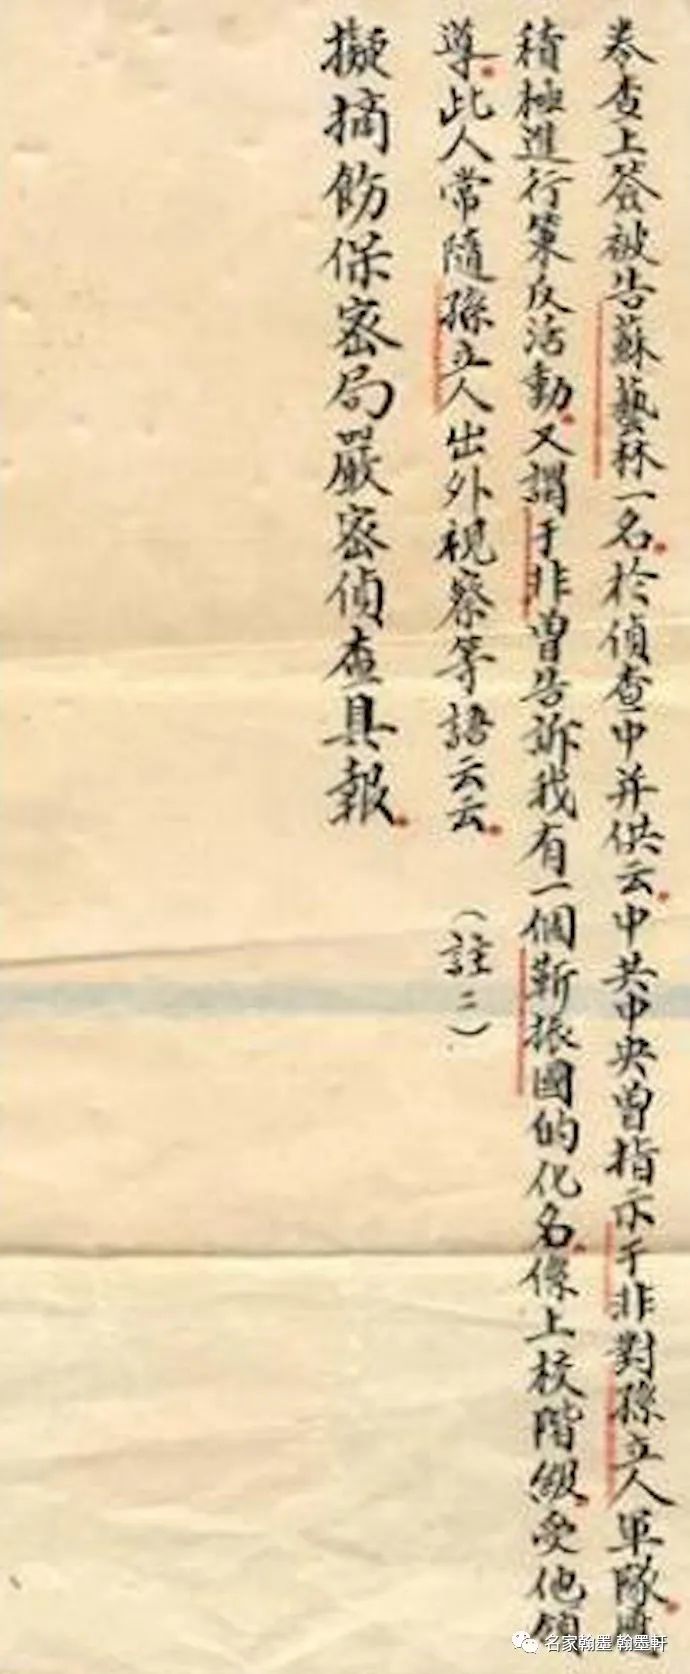 卷查上簽被告蘇藝林一名。於偵查中并供云。中共中央曾指示于非對孫立人軍隊。應
積極進行策反活動。又謂于非曾告訴我有一個靳振國的化名。係上校階級。受他領
導。此人常隨孫立人出外視察等語云云。(註二)
擬摘飭保密局嚴密偵查具報。
名家翰墨 翰墨軒